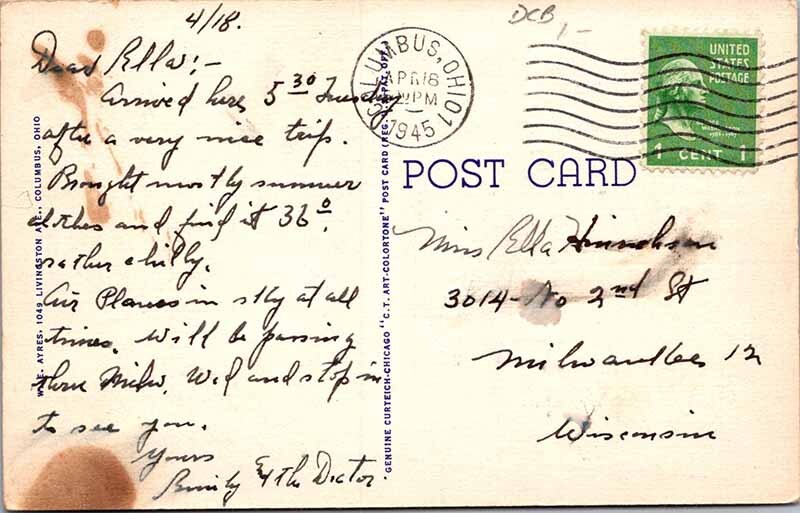 4/18.
DCB
Dear Ella:-
Arrived here 5 30 Tuesday
after a very nice trip.
Brought mostly summer
clothes and find it 36°,
rather chilly.
Air Planes in sky at all
times. Will be passing
thru Milw. Wed and stop in
to see you.
Yours
& the Doctor.
W. E. AYRES, 1049 LIVINGSTON AVE., COLUMBUS, OHIO
GENUINE CURTEICH-CHICAGO "C.T. ART-COLORTONE" POST CARD (REG. U.S. PAT. OFF.)
COLUMBUS, OHIO 1
APR 18
PM
1945
UNITED
STATES
POSTAGE
1 CENT 1
POST CARD
Miss Ella
3014 - No 2nd St
Milwaukee 12
Wisconsin